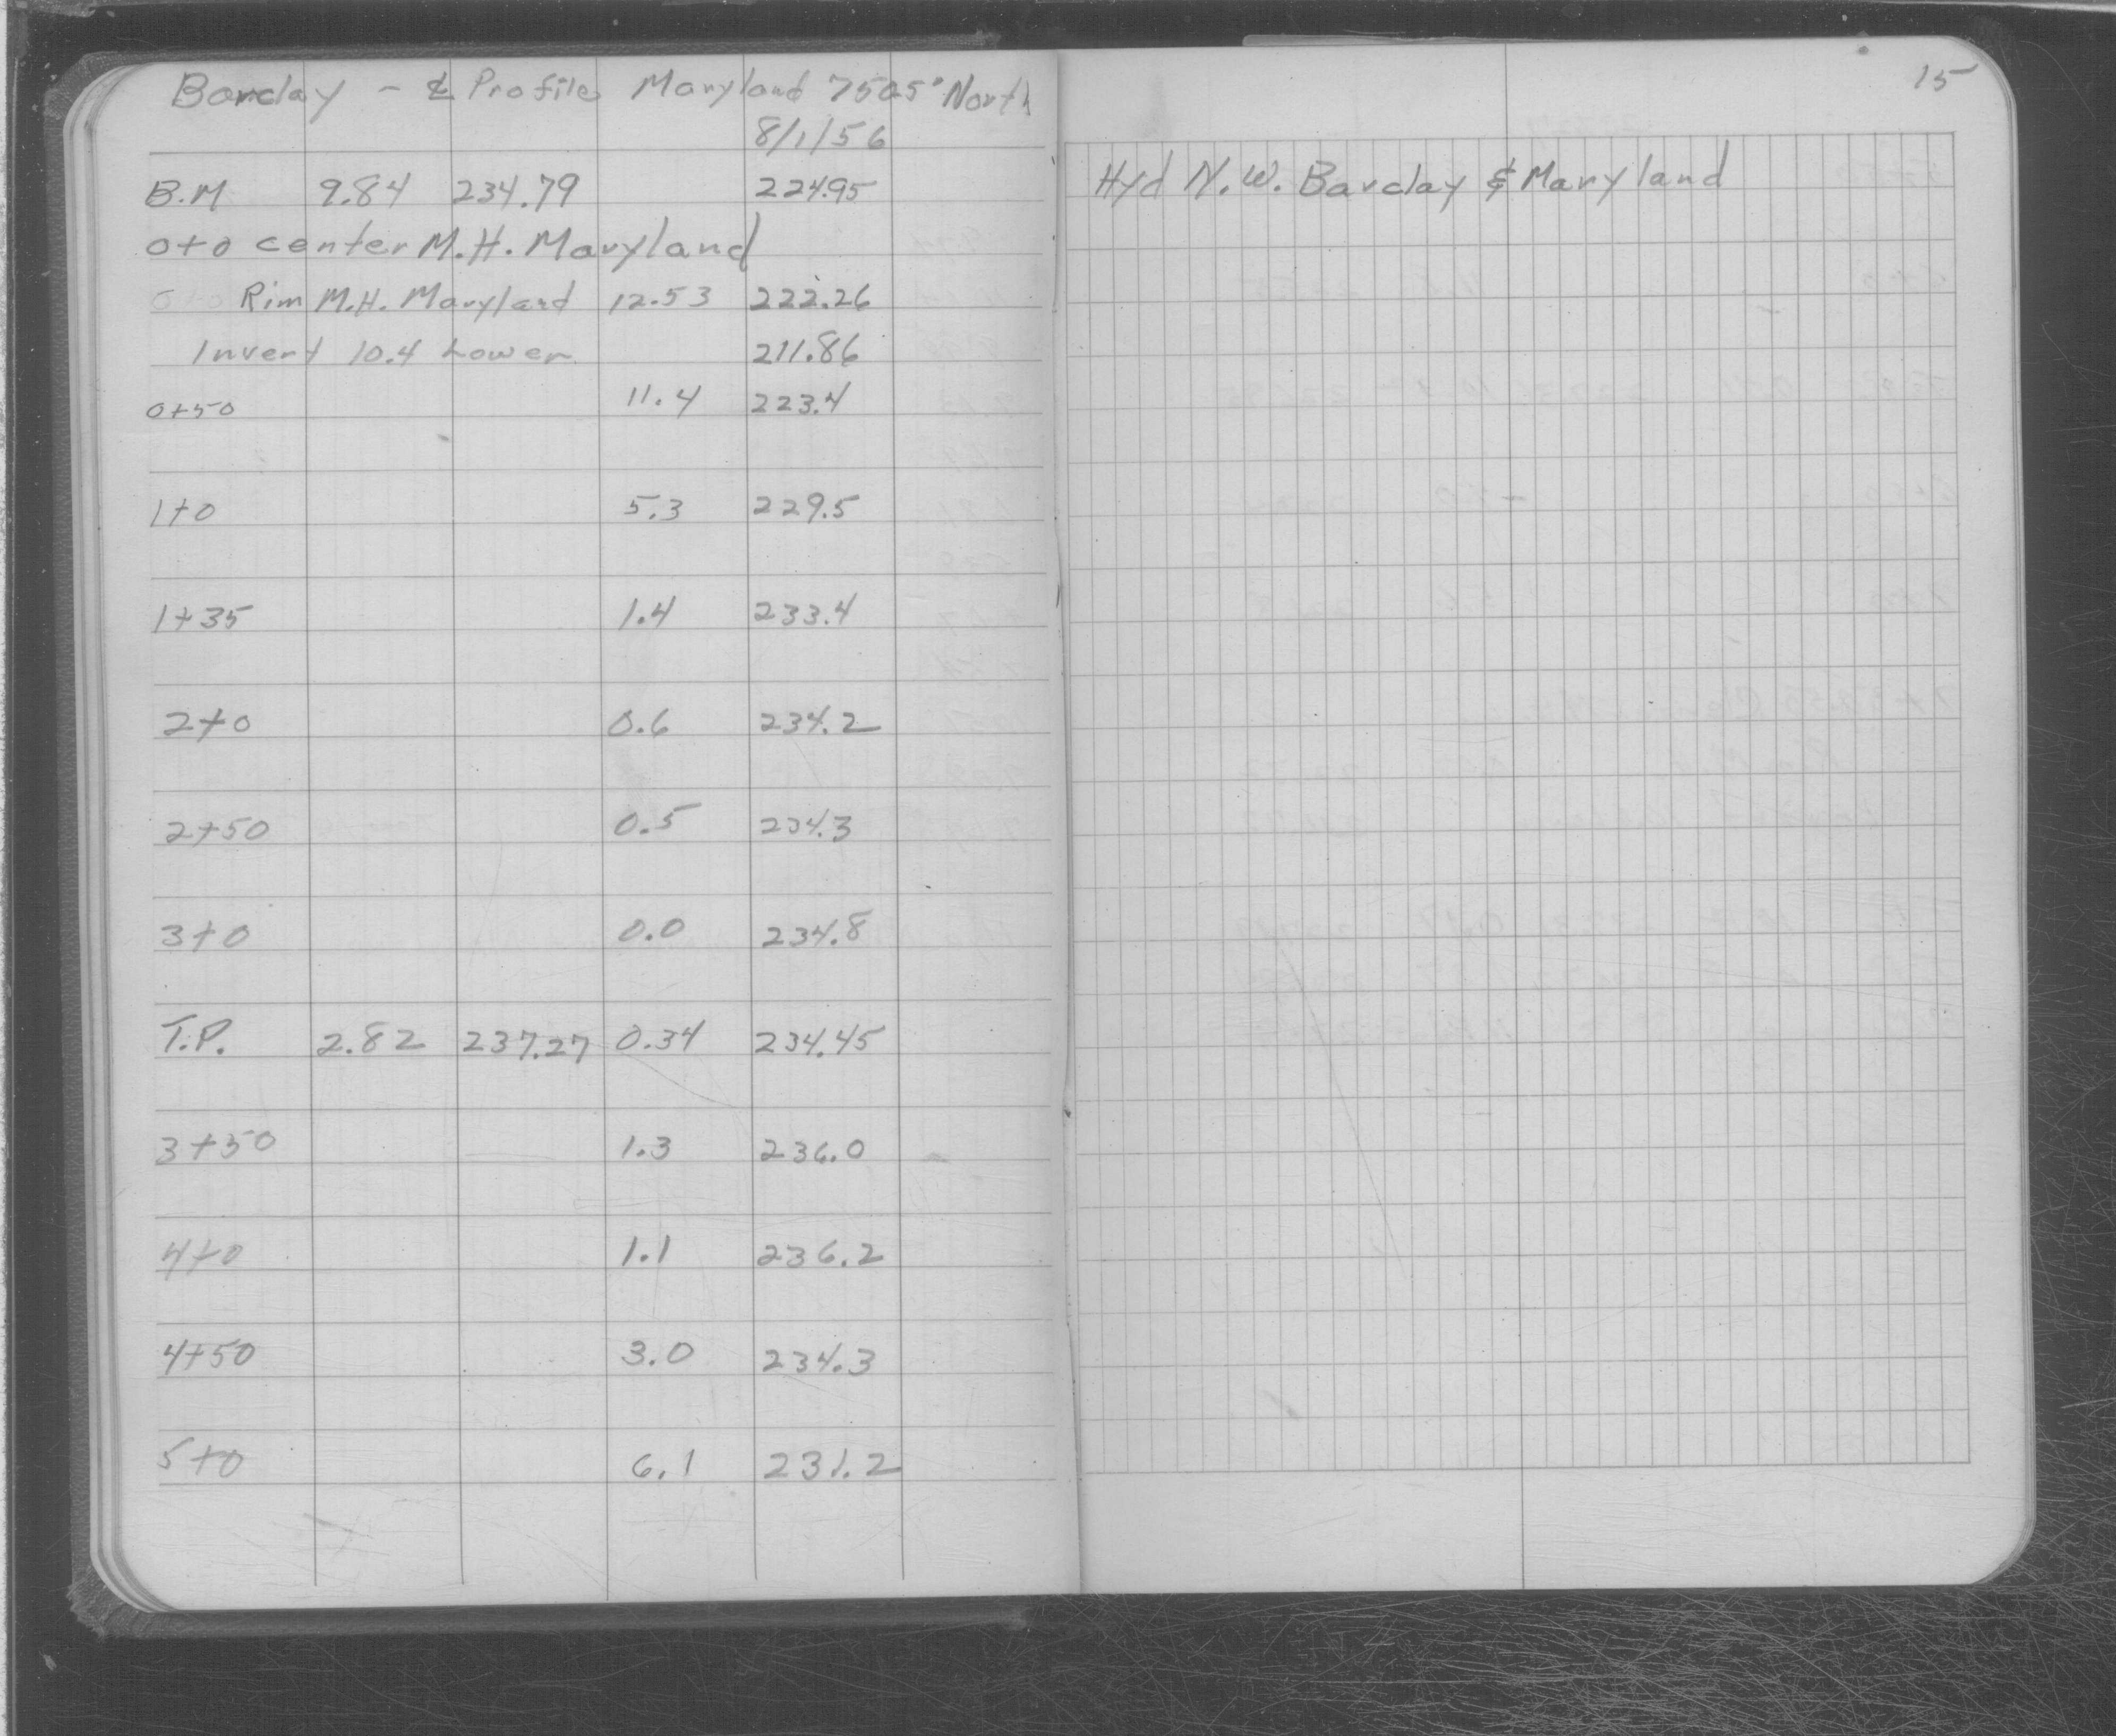 Barclay - ℄ Profile Maryland 7505' North
8/1/56
B.M 9.84 234.79 224.95
0+0 center M.H. Maryland
0+0 Rim M.H. Maryland 12.53 222.26
Invert 10.4 Lower 211.86
0+50 11.4 223.4
1+0 5.3 229.5
1+35 1.4 233.4
2+0 0.6 234.2
2+50 0.5 234.3
3+0 0.0 234.8
T.P. 2.82 237.27 0.34 234.45
3+50 1.3 236.0
4+0 1.1 236.2
4+50 3.0 234.3
5+0 6.1 231.2
15
Hyd N.W. Barclay & Maryland